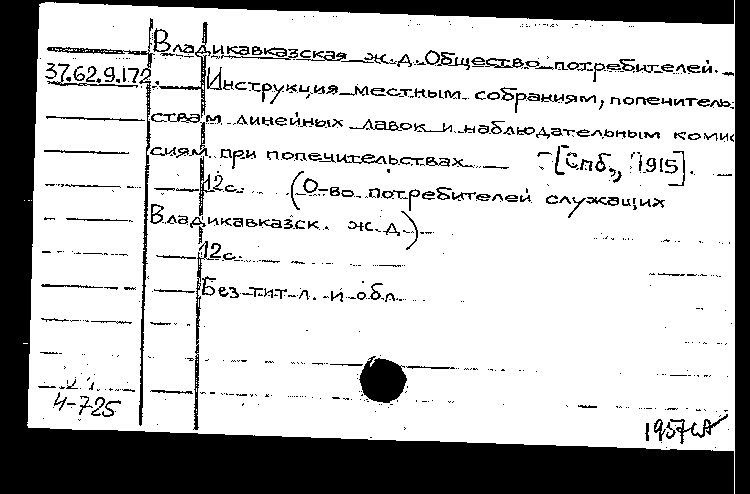 Владикавказская ж.д. Общество потребителей.
37.62.9.172. Инструкция местным собраниям, попечитель-
ствам линейных лавок и наблюдательным комис
сиям при попечительствах [Спб., 1915].
12с. (О-во потребителей служащих
Владикавказск. ж.д.)
12с.
Без тит л. и обл.
4-725